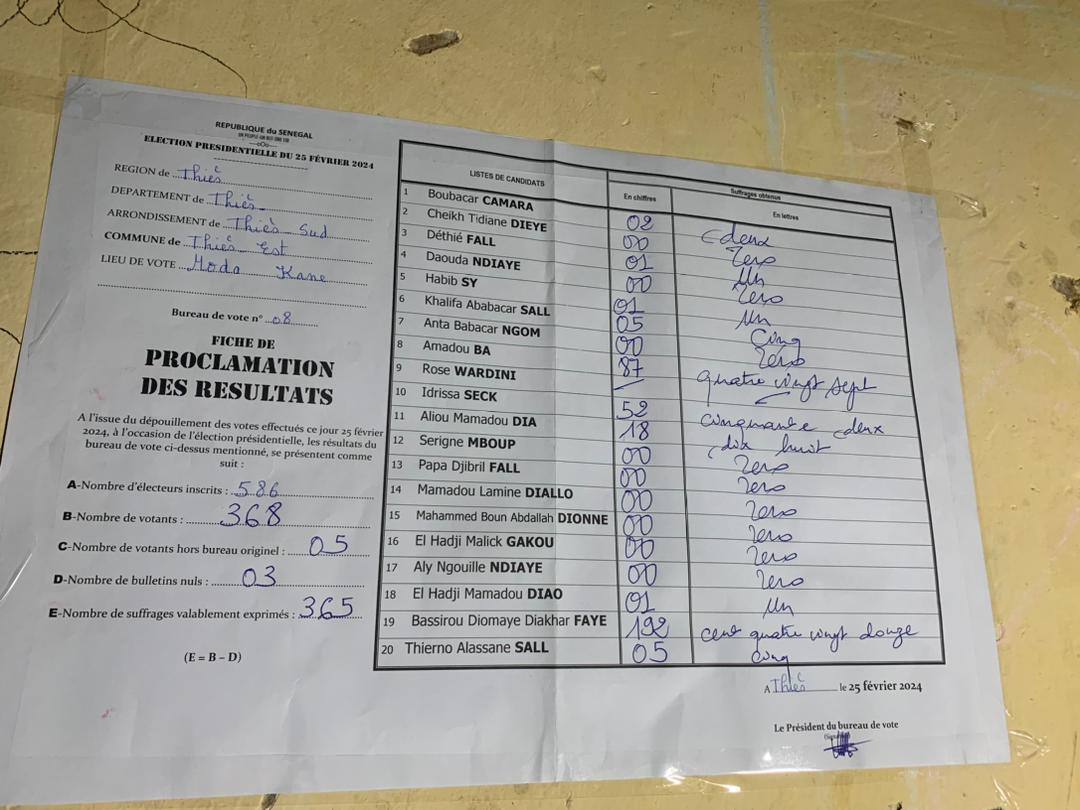 REPUBLIQUE du SENEGAL
UN PEUPLE-UN BUT-UNE FOI
---oOo---
ELECTION PRESIDENTIELLE DU 25 FÉVRIER 2024
REGION de Thiès
DEPARTEMENT de Thiès
ARRONDISSEMENT de Thiès Sud
COMMUNE de Thiès Est
LIEU DE VOTE Moda Kane
Bureau de vote n° 08
FICHE DE
PROCLAMATION
DES RESULTATS
A l'issue du dépouillement des votes effectués ce jour 25 février
2024, à l'occasion de l'élection présidentielle, les résultats du
bureau de vote ci-dessus mentionné, se présentent comme
suit :
A-Nombre d'électeurs inscrits : 586
B-Nombre de votants : 368
C-Nombre de votants hors bureau originel : 05
D-Nombre de bulletins nuls : 03
E-Nombre de suffrages valablement exprimés : 365
(E = B – D)
LISTES DE CANDIDATS Suffrages obtenus
En chiffres En lettres
1 Boubacar CAMARA 02 deux
2 Cheikh Tidiane DIEYE 00 Zero
3 Déthié FALL 01 Un
4 Daouda NDIAYE 00 Zero
5 Habib SY 01 Un
6 Khalifa Ababacar SALL 05 Cinq
7 Anta Babacar NGOM 00 Zero
8 Amadou BA 87 quatre vingt sept
9 Rose WARDINI –
10 Idrissa SECK 52 cinquante deux
11 Aliou Mamadou DIA 18 dix huit
12 Serigne MBOUP 00 Zero
13 Papa Djibril FALL 00 Zero
14 Mamadou Lamine DIALLO 00 Zero
15 Mahammed Boun Abdallah DIONNE 00 Zero
16 El Hadji Malick GAKOU 00 Zero
17 Aly Ngouille NDIAYE 00 Zero
18 El Hadji Mamadou DIAO 01 Un
19 Bassirou Diomaye Diakhar FAYE 192 cent quatre vingt douze
20 Thierno Alassane SALL 05 Cinq
A Thiès le 25 février 2024
Le Président du bureau de vote